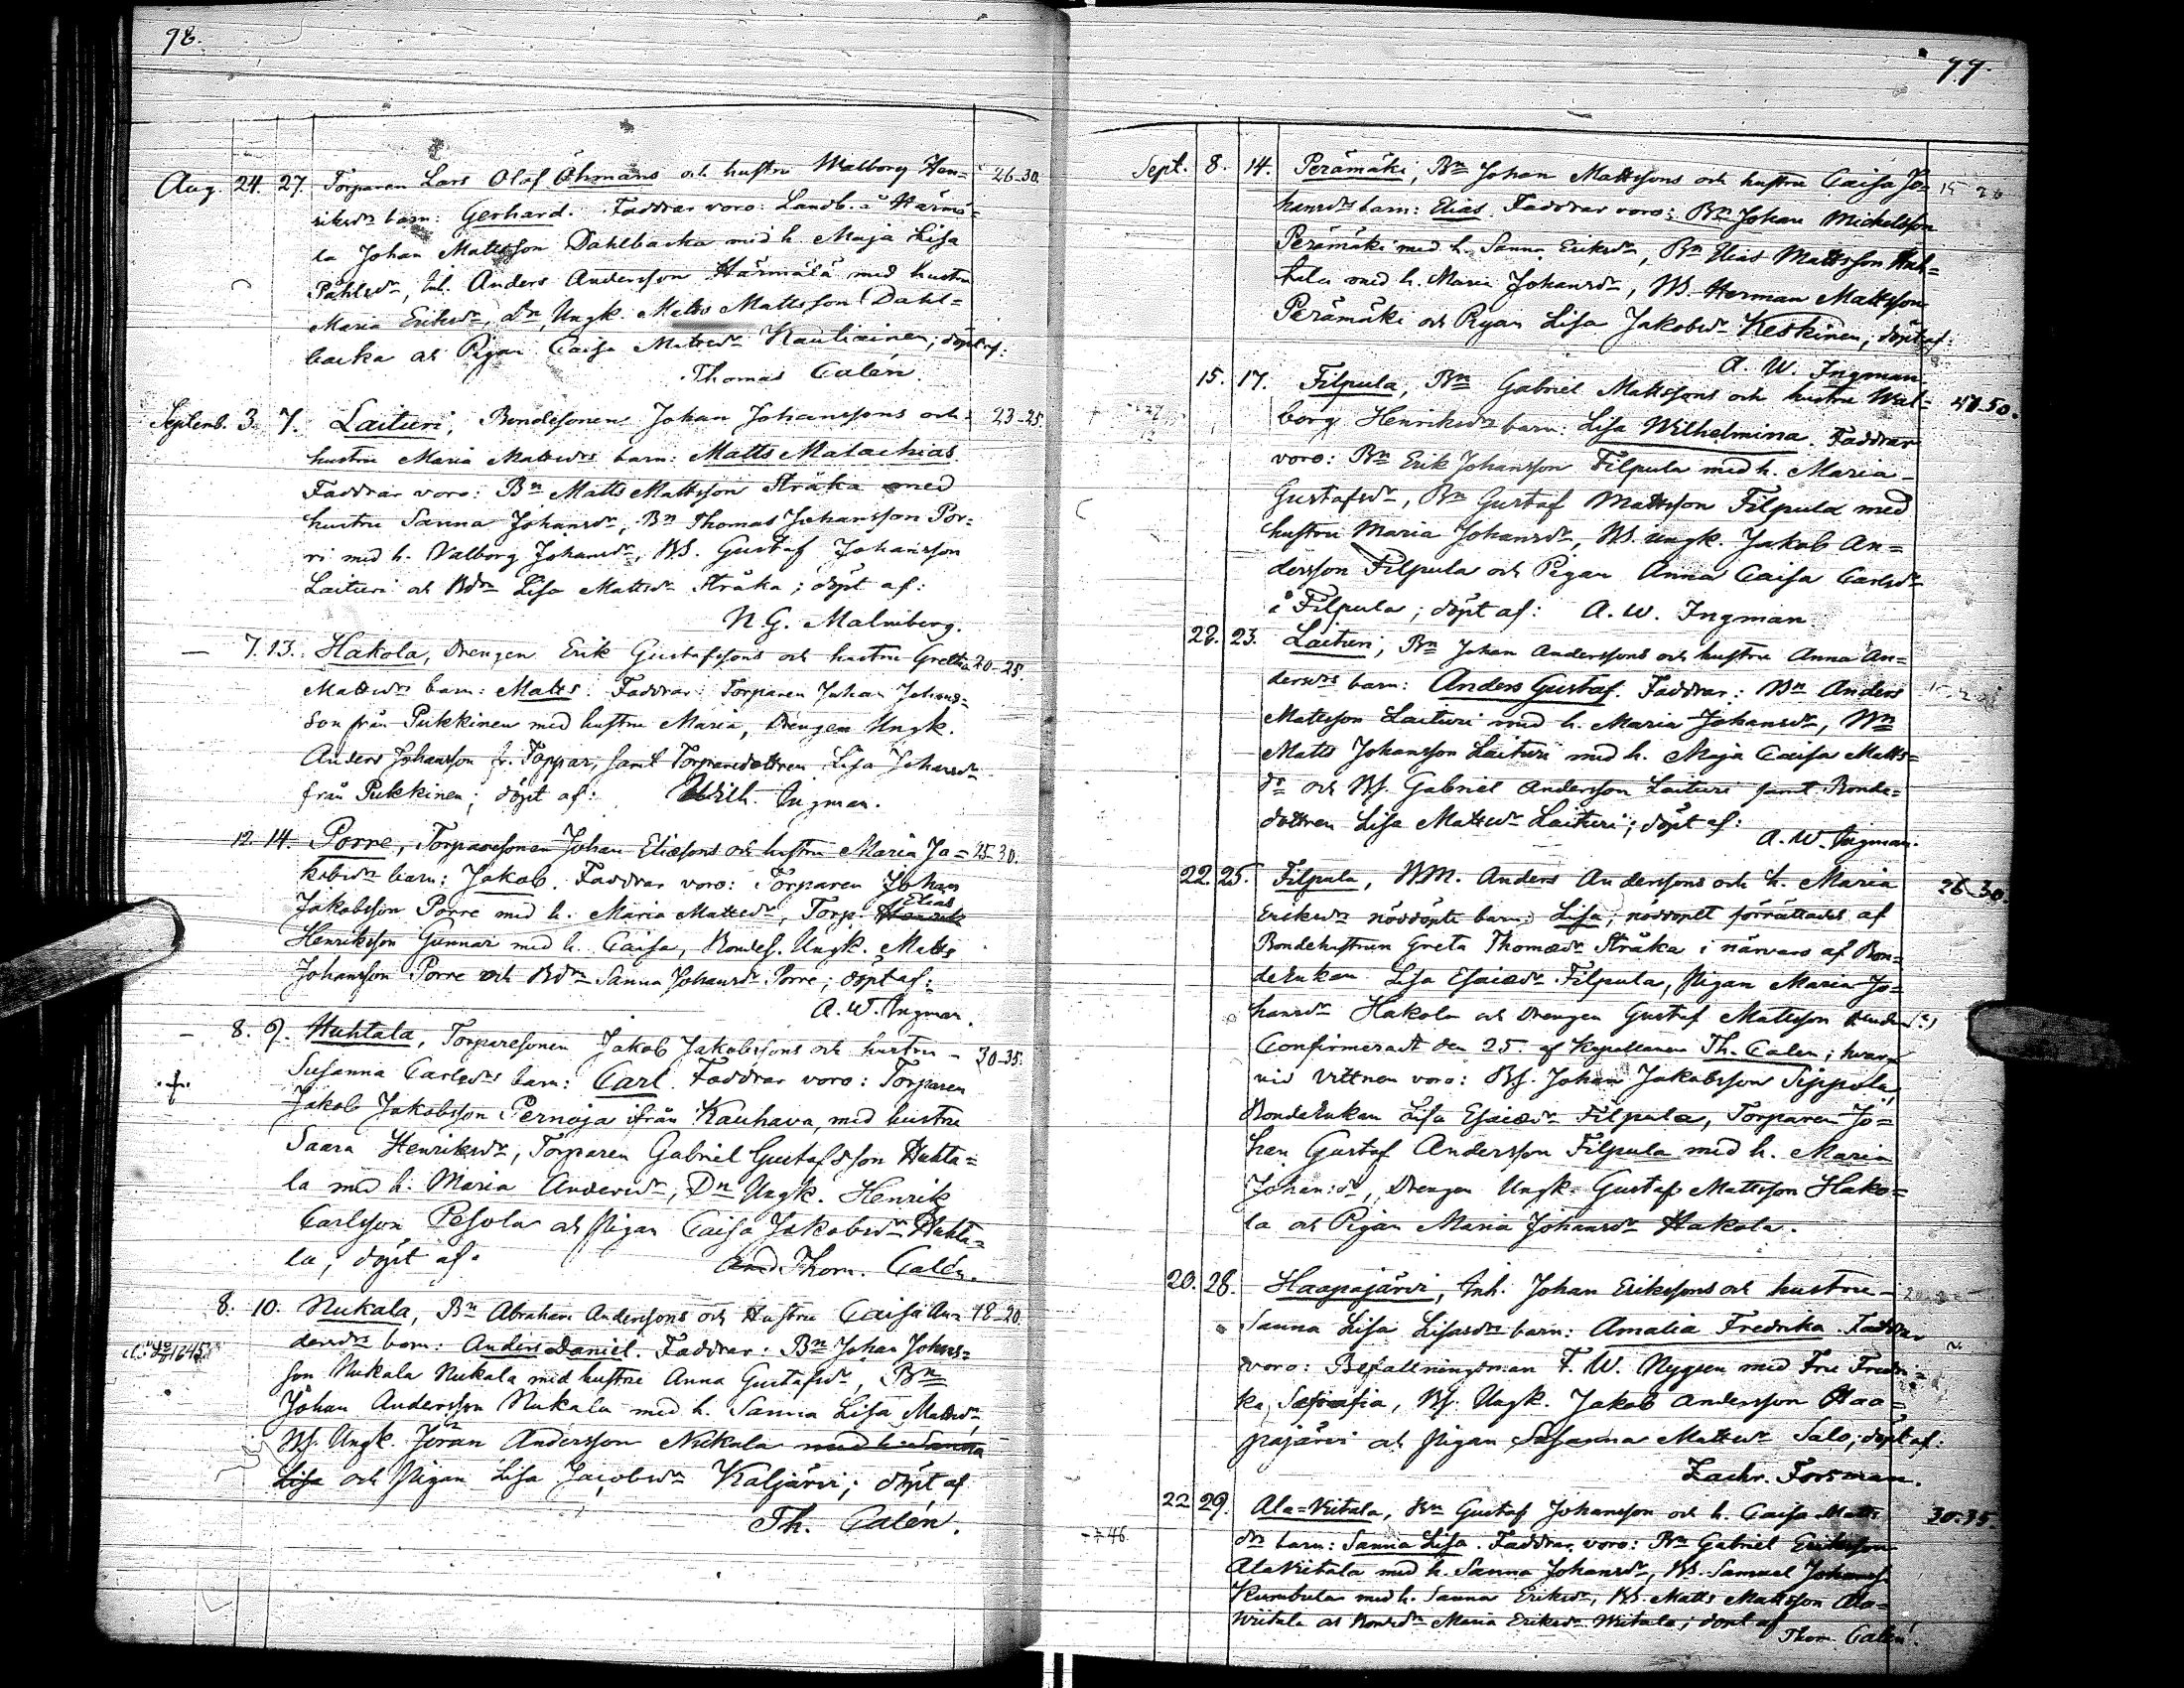 98.
Aug. 24. 27. Torparen Lars Olof Öhmans och hustru Walborg Hen= 26-30.
riksdrs barn: Gerhard. Faddrar voro: Landb. å Härmä=
la Johan Mattsson Dahlbacka med h. Maja Lisa
Påhlsdr, Inh. Anders Andersson Härmälä med hustru
Maria Eriksdr, Dn Ungk. Matts Mattsson Dahl=
backa och Pigan Caisa Mattsdr Kauliainen; döpt af:
Thomas Calén.
Septemb. 3. 7. Laituri, Bondesonen Johan Johanssons och 23-25.
hustru Maria Mattsdrs barn: Matts Malachias.
Faddrar voro: Bn Matts Mattsson Stråka med
hustru Sanna Johansdr, Bn Thomas Johansson Por=
ri med h. Valborg Johansdr, BS. Gustaf Johansson
Laituri och Bdn Lisa Mattsdr Stråka; döpt af:
N. G. Malmberg.
— 7. 13. Hakola, Drengen Erik Gustafssons och hustru Greta 20-25.
Mattsdrs barn: Matts. Faddrar: Torparen Johan Johans=
son från Pukkinen med hustru Maria, Drengen Ungk.
Anders Johansson fr. Toppar, samt Torparedottren Lisa Johansdr
från Pukkinen; döpt af: Wilh. Ingman.
12. 14. Porre, Torparesonen Johan Eliæsons och hustru Maria Ja= 25-30.
kobsdrs barn: Jakob. Faddrar voro: Torparen Johan
Jakobsson Porre med h. Maria Mattsdr, Torp. Elias
Henriksson Gunnar med h. Caisa, Bondes. Ungk. Matts
Johansson Porre och Bdn Sanna Johansdr Porre; döpt af:
A. W. Ingman.
— 8. 9. Huhtala, Torparesonen Jakob Jakobssons och hustru 30-35.
Susanna Carlsdrs barn: Carl. Faddrar voro: Torparen
Jakob Jakobsson Pernaja ifrån Kauhava, med hustru
Saara Henriksdr, Torparen Gabriel Gustafsson Huhta=
la med h. Maria Andersdr, Dn Ungk. Henrik
Carlsson Pesola och Pigan Caisa Jakobsdr Huhta=
la, döpt af. Thom. Calén.
8. 10. Nukala, Bn Abraham Anderssons och Hustru Caisa An= 18-20.
dersdrs barn: Anders Daniel. Faddrar: Bn Johan Johns=
son Nukala Nukala med hustru Anna Gustafsdr, Bn
Johan Andersson Nukala med h. Sanna Lisa Mattsdr,
BS. Ungk. Jöran Andersson Nukala med h. Sanna
Lisa och Pigan Lisa Jacobsdr Kaljärvi; döpt af
Th. Calén.
99.
Sept. 8. 14. Perämäki, Bn Johan Mattssons och hustru Caisa Jo=
hansdrs barn: Elias. Faddrar voro: Bn Johan Michelsson
Perämäki med h. Sanna Eriksdr, Bn Elias Mattsson Huh=
tala med h. Maria Johansdr, BS. Herman Mattsson
Perämäki och Pigan Lisa Jakobsdr Keskinen; döpt af:
A. W. Ingman.
15. 17. Filpula, Bn Gabriel Mattssons och hustru Wal=
borg Henriksdrs barn: Lisa Wilhelmina. Faddrar
voro: Bn Erik Johansson Filpula med h. Maria
Gustafsdr, Bn Gustaf Mattsson Filpula med
hustru Maria Johansdr, BS. ungk. Jakob An=
dersson Filpula och Pigan Anna Caisa Carlsdr
i Filpula; döpt af: A. W. Ingman.
22. 23. Laituri, Bn Johan Anderssons och hustru Anna An=
dersdrs barn: Anders Gustaf. Faddrar: Bn Anders
Mattsson Laituri med h. Maria Johansdr, Bn
Matts Johansson Laituri med h. Maja Caisa Matts=
dr och BS. Gabriel Andersson Laituri samt Bonde=
dottren Lisa Mattsdr Laituri; döpt af:
A. W. Ingman.
22. 25. Filpula, Anders Anderssons och h. Maria 26-30.
Eriksdrs nöddöpte barn: Lisa; nöddopet förrättades af
Bondehustrun Greta Thomædr Stråka i närvaro af Bon=
deenkan Lisa Esaiædr Filpula, Pigan Maria Jo=
hansdr Hakola och Drengen Gustaf Mattsson
Confirmeradt den 25. af Kapellanen Th. Calén; hvar
vid vittnen voro: BS. Johan Jakobsson Sippola,
BondeEnkan Lisa Esaiædr Filpula, Torparen Jo=
han Gustaf Andersson Filpula med h. Maria
Johansdr, Drengen Ungk. Gustaf Mattsson Hako=
la och Pigan Maria Johansdr Hakola.
20. 28. Haapajärvi, Inh. Johan Erikssons och hustru
Sanna Lisa Lisasdrs barn: Amalia Fredrika. Faddrar
voro: Befallningsman F. W. Nygren med Fru Fredri=
ka, BS. Ungk. Jakob Andersson Haa=
pajärvi och Pigan Susanna Mattsdr Salo; döpt af:
Zachr. Forsman.
22. 29. Ala=Viitala, Bn Gustaf Johansson och h. Caisa Matts 30-35.
drs barn: Sanna Lisa. Faddrar voro: Bn Gabriel Eriksson
AlaViitala med h. Sanna Johansdr, BS. Samuel Johanss.
Kumbula med h. Sanna Eriksdr, BS. Matts Mattsson Ala=
Wiitala och Bondr Maria Eriksdr Wiitala; döpt af
Thom. Calén.